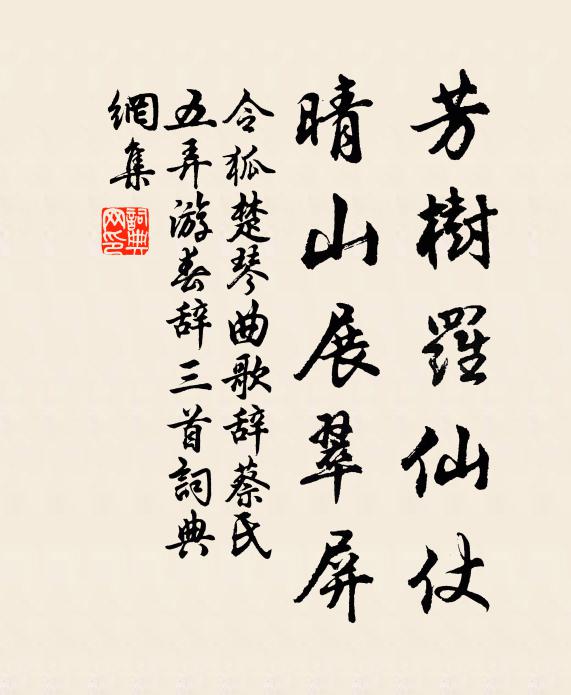 芳樹羅仙仗
晴山展翠屏
令狐楚琴曲歌辞蔡氏
五弄游春辞三首詞典
網集
詞典网印